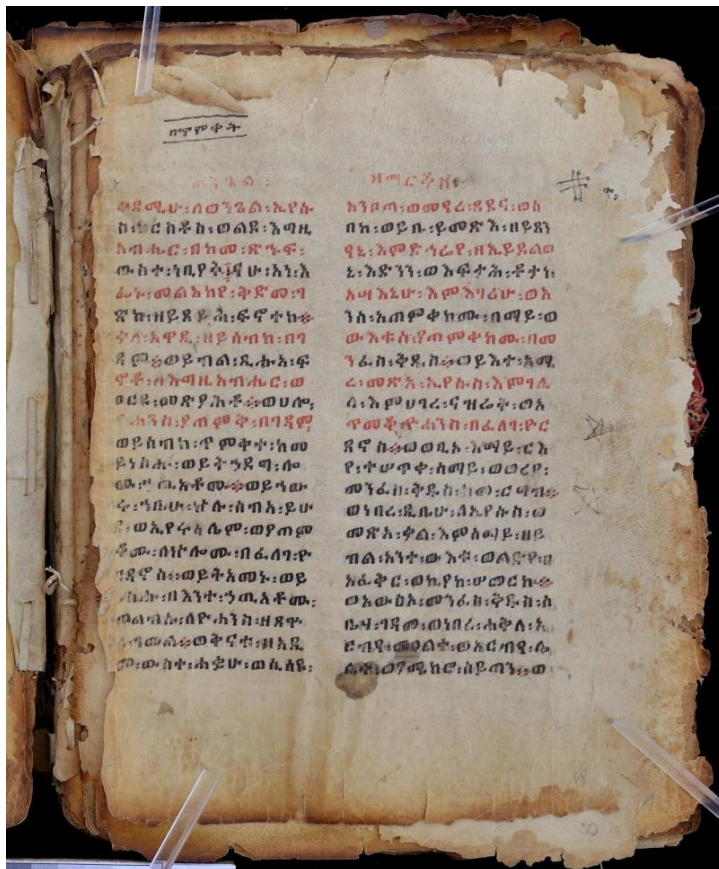 በጥምቀት
ወንጌል፡
ቀዳሚሁ፡ለወንጌል፡ኢየሱ
ስ፡ክርስቶስ፡ወልደ፡እግዚ
አብሔር፡በከመ፡ጽሑፍ፡
ውስተ፡ነቢየት፡ናሁ፡አነ፡እ
ፌኑ፡መልአክየ፡ቅድመ፡ገ
ጽከ፡ዘይጸይሕ፡ፍኖተከ፡፡
ቃለ፡አዋዲ፡ዘይሰብክ፡በገ
ዳም፡፡ወይብል፡ጺሑ፡ፍ
ኖቶ፡ለእግዚአብሔር፡ወ
ዐርዩ፡መጽያሕቶ፡፡ወሀሎ፡
ዮሐንስ፡ያጠምቅ፡በገዳም
ወይሰብክ፡ጥምቀተ፡ከመ
ይነስሑ፡ወይትኀደግ፡ሎ
ሙ፡ኃጢአቶሙ፡፡ወይኀው
ሩ፡ኀቤሁ፡ኵሉ፡ሰብአ፡ይሁ
ዳ፡ወኢየሩሳሌም፡ወያጠም
ቆሙ፡ለኵሎሙ፡በፈለገ፡ዮ
ርዳኖስ፡፡ወይትአመኑ፡ወይ
ነስሑ፡በእንተ፡ኃጢአቶሙ፡
ወልብሱ፡ለዮሐንስ፡ዘጸጕ
ረ፡ገመል፡፡ወቅናቱ፡ዘአዲ
ም፡ውስተ፡ሐቌሁ፡ወሲሳዩ፡
ዘማርቆስ፡
አንበጣ፡ወመዓረ፡ጸደና፡ወሰ
በከ፡ወይቤ፡ይመጽእ፡ዘይጸን
ዓኒ፡እምድኅሬየ፡ዘኢይደልወ
ኒ፡እድንን፡ወእፍታሕ፡ቶታነ፡
አሣእኒሁ፡እምእገሪሁ፡ወአ
ንሰ፡አጠምቀክሙ፡በማይ፡ወ
ውእቱሰ፡ያጠምቀክሙ፡በመ
ንፈስ፡ቅዱስ፡፡ወይእተ፡አሚ
ረ፡መጽአ፡ኢየሱስ፡እምገሊ
ላ፡እምሀገረ፡ናዝሬት፡ወአ
ጥመቆ፡ዮሐንስ፡በፈለገ፡ዮር
ዳኖስ፡፡ወወፂአ፡እማይ፡ርእ
የ፡ተሠጥቀ፡ሰማይ፡ወወረየ፡
መንፈስ፡ቅዱስ፡ከመ፡ርግብ፡፡
ወነበረ፡ዲቤሁ፡ለኢየሱስ፡ወ
መጽአ፡ቃል፡እምሰማይ፡ዘይ
ብል፡አንተ፡ውእቱ፡ወልድየ፡ዘ
አፈቅር፡ወኪያከ፡ሠመርኩ፡፡
ወአውፅአ፡መንፈስ፡ቅዱስ፡ለ
ቤሃ፡ገዳመ፡ወነበረ፡ሐቅለ፡አ
ርብዓ፡መዐልተ፡ወአርብዓ፡ሌ
ሊተ፡ወያሜክሮ፡ሰይጣን፡፡ወ